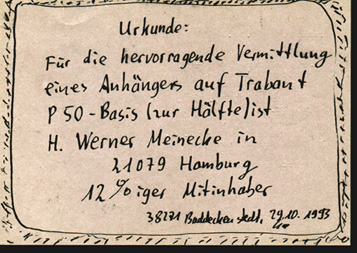 Urkunde:
Für die hervorragende Vermittlung
eines Anhängers auf Trabant
P 50-Basis (zur Hälfte) ist
H. Werner Meinecke in
21079 Hamburg
12%iger Mitinhaber
38271 Baddeckenstedt, 29.10.1993